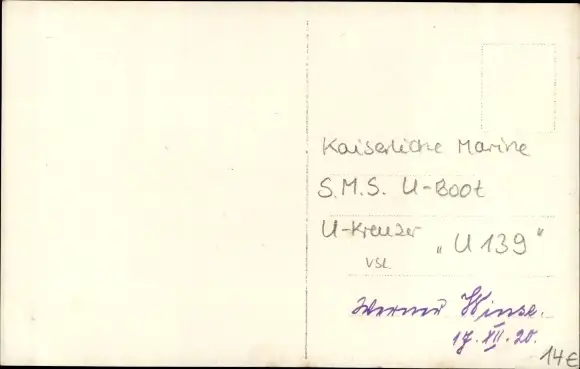 Kaiserliche Marine
S.M.S. U-Boot
U-Kreuzer „U 139"
vsl.
Werner
17. XII. 20.
14€